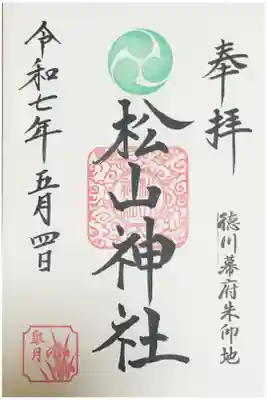 奉拝
徳川幕府朱印地
松山神社
令和七年五月四日
皐月